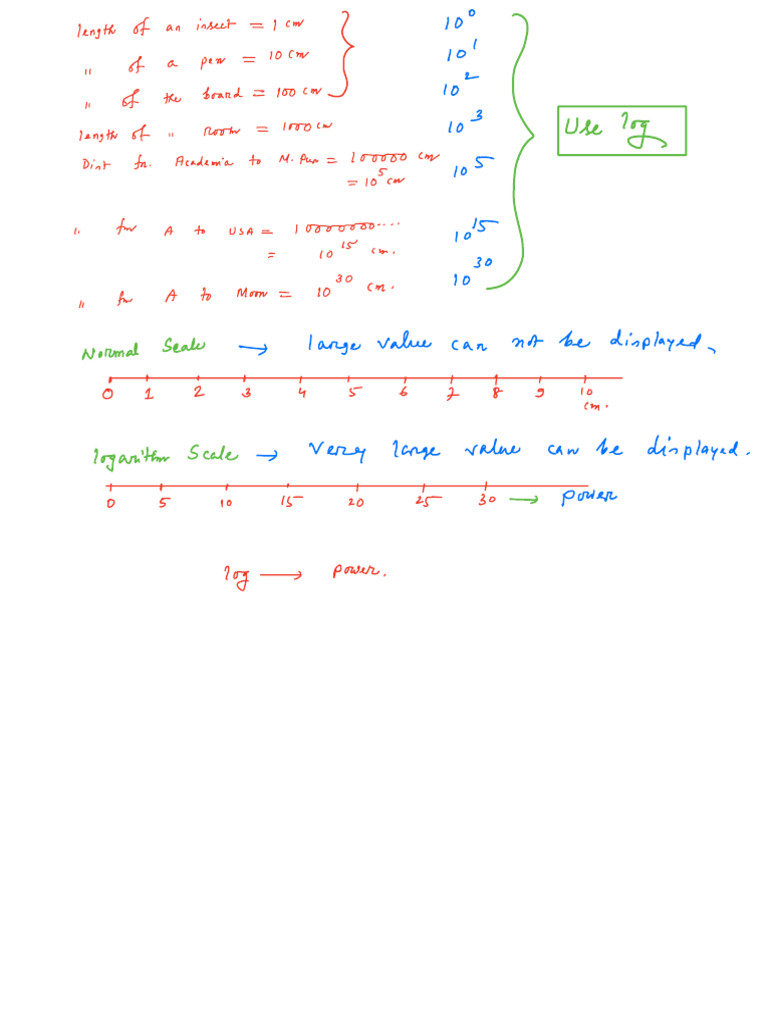 length of an insect = 1 cm 10⁰
" of a pen = 10 cm 10¹
" of the board = 100 cm 10²
length of " room = 1000 cm 10³
Use log
Dist fr. Academia to M. Pur = 100000 cm 10⁵
= 10⁵ cm
" for A to USA = 10000000....
= 10¹⁵ cm. 10¹⁵
" for A to Moon = 10³⁰ cm. 10³⁰
Normal Scale → large value can not be displayed.
0 1 2 3 4 5 6 7 8 9 10
cm.
logarithm Scale → Very large value can be displayed.
0 5 10 15 20 25 30 → power
log → power.